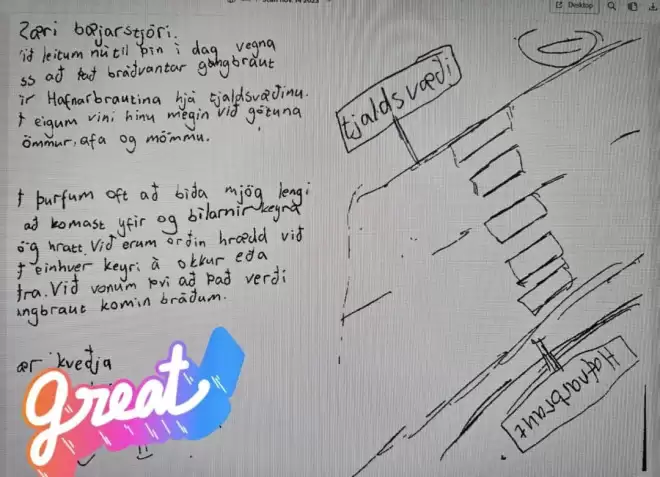 Kæri bæjarstjóri.
ið leitum nú til þín í dag vegna
ss að það bráðvantar gangbraut
ir Hafnarbrautina hjá tjaldsvæðinu.
eigum vini hinu megin við götuna
ömmur, afa og mömmu.
þurfum oft að bíða mjög lengi
að komast yfir og bílarnir keyra
ög hratt. Við erum orðin hrædd við
einhver keyri á okkur eða
tra. Við vonum því að það verði
ngbraut komin bráðum.
ær kveðja
great
tjaldsvæði
Hafnarbraut
Desktop